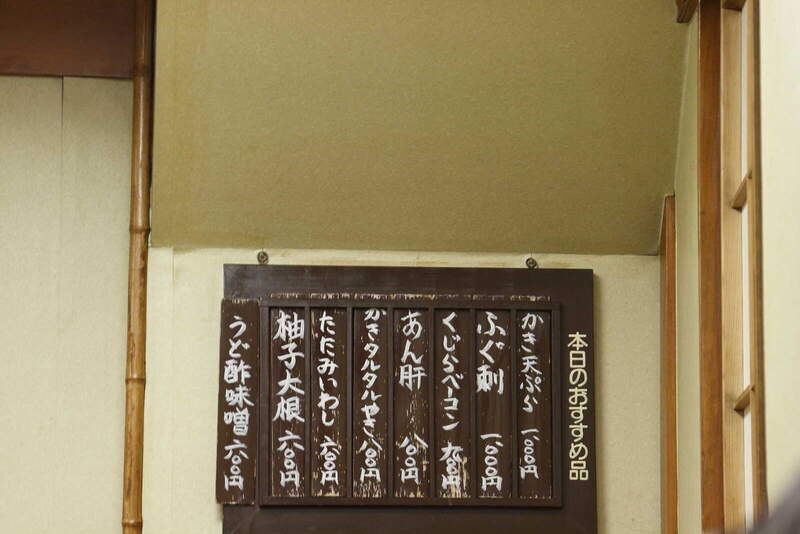 本日のおすすめ品
かき天ぷら 一、〇〇〇円
ふぐ刺 一、〇〇〇円
くじらベーコン 九〇〇円
あん肝 八〇〇円
かきタルタルやき 八〇〇円
たたみいわし 六〇〇円
柚子大根 六〇〇円
うど酢味噌 六〇〇円